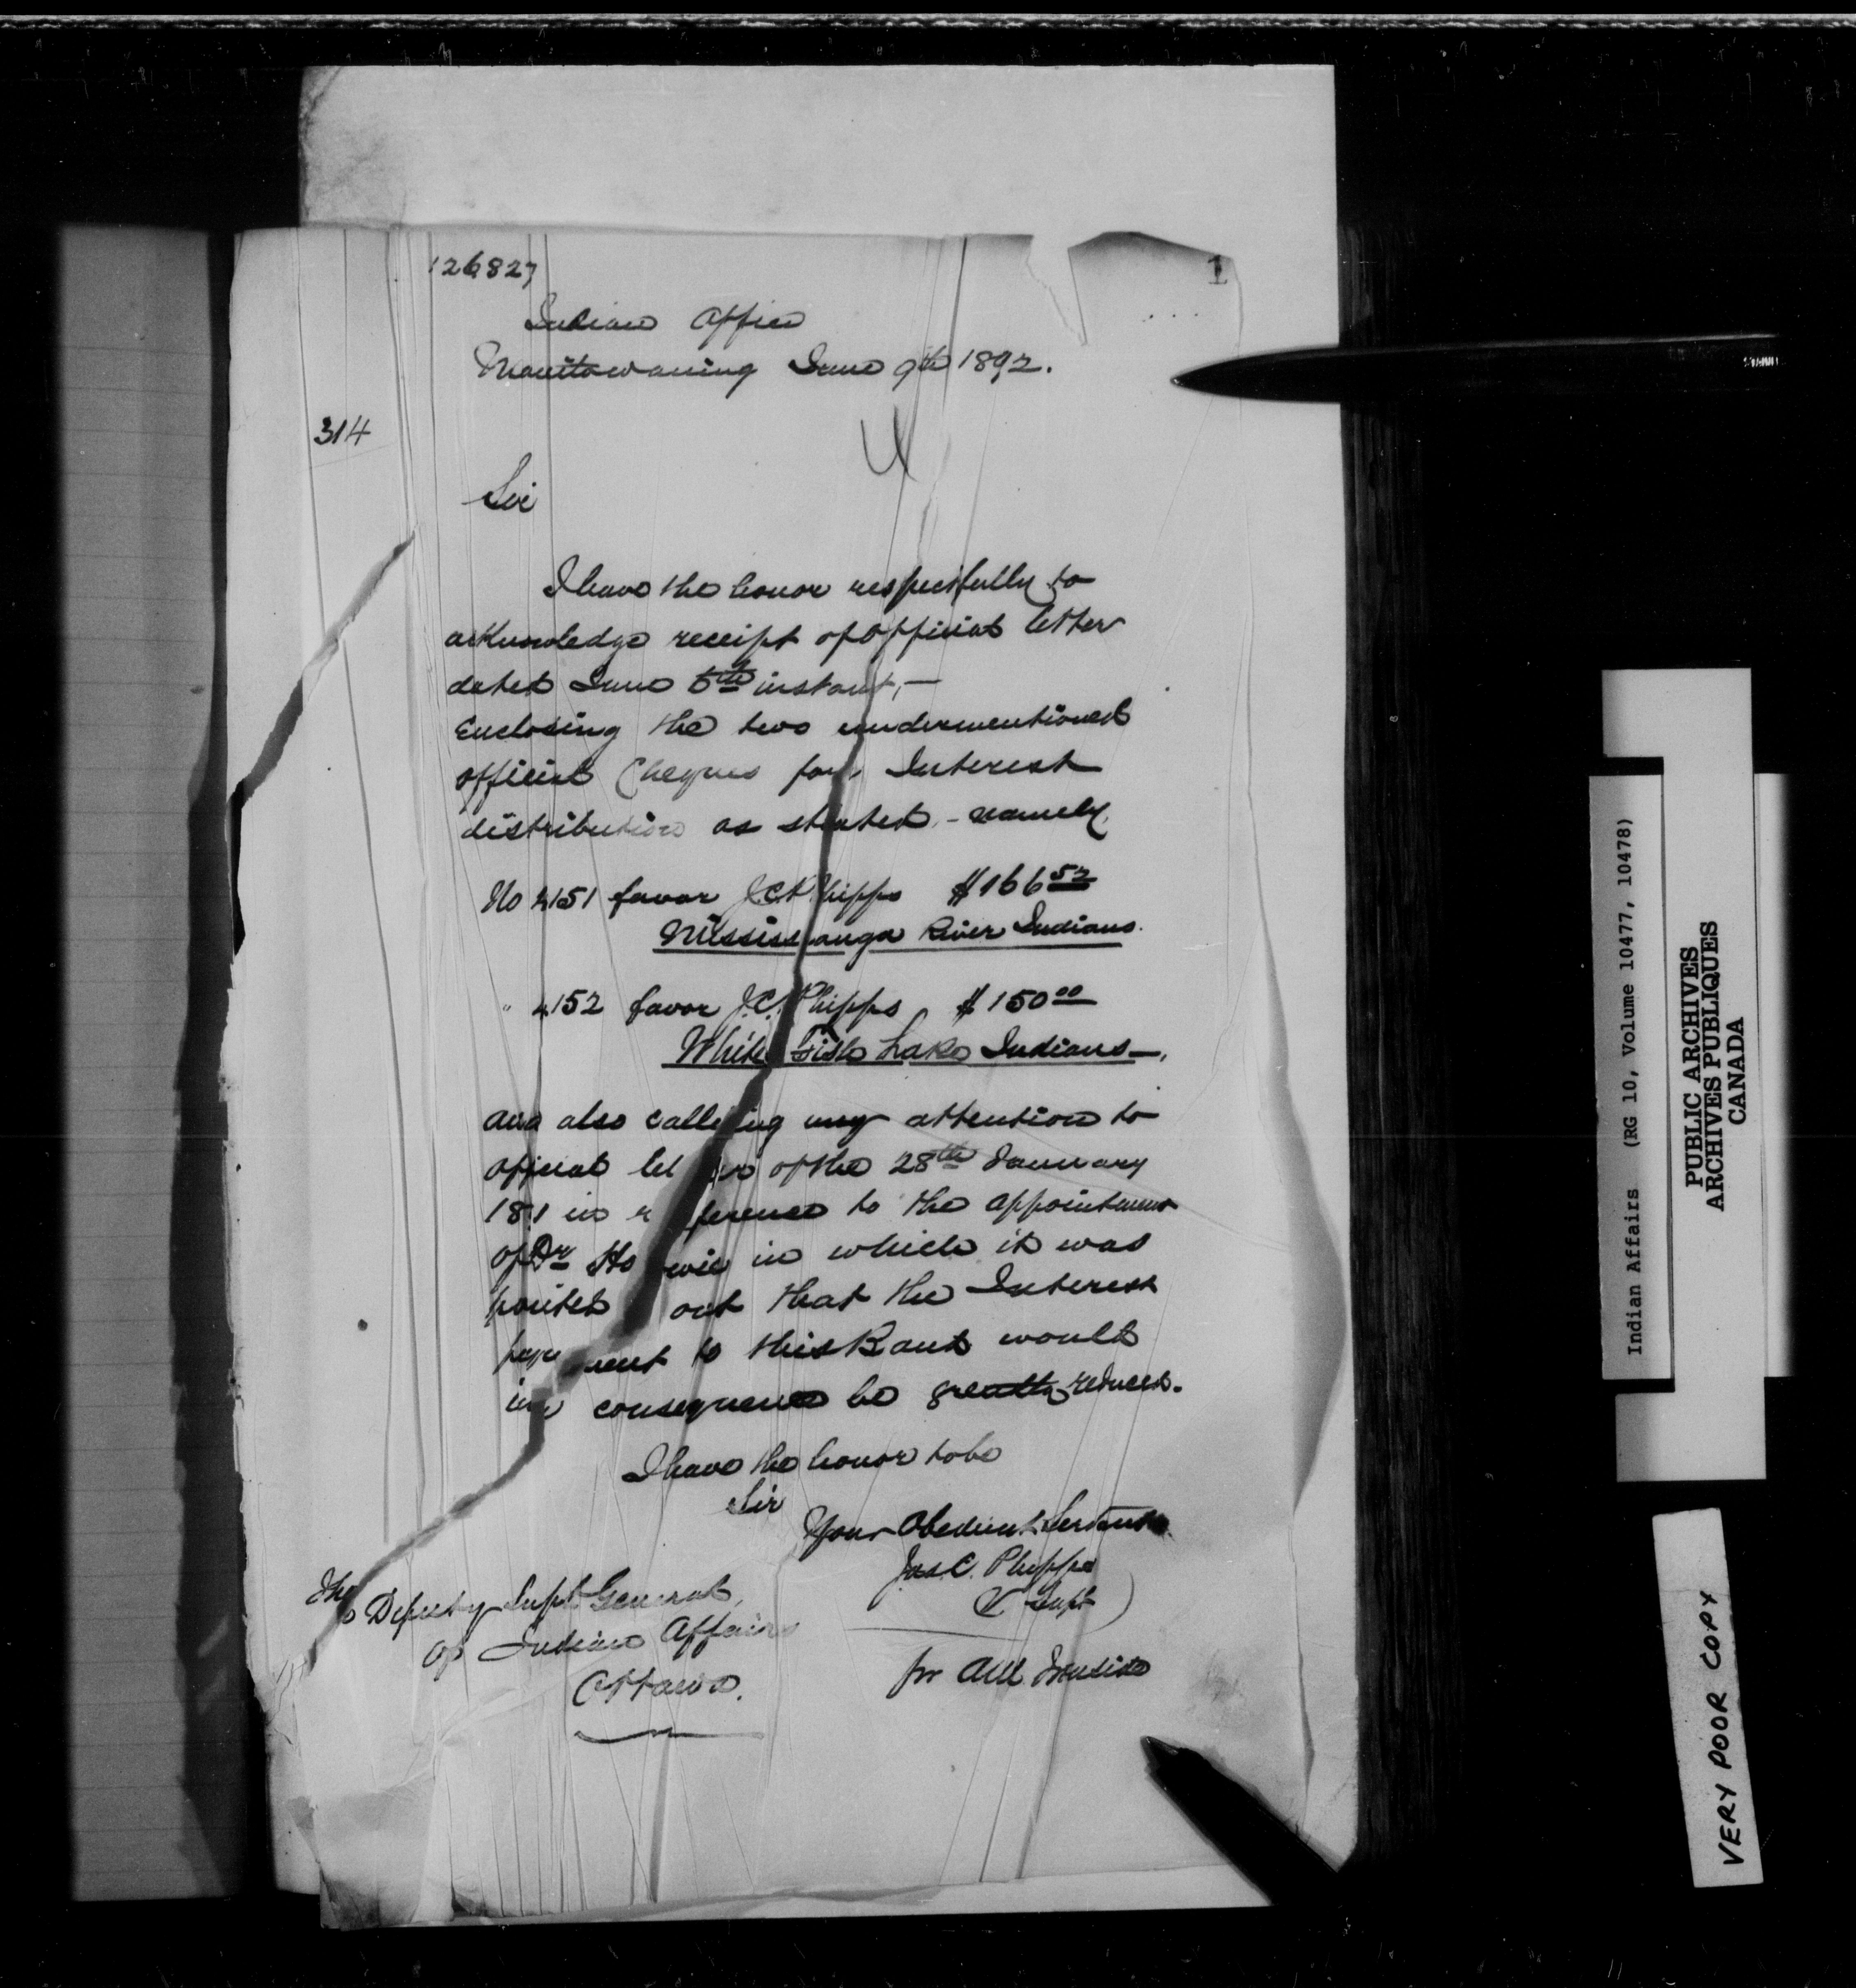 126827
1
Indian Office
Manitowaning June 9th 1892.
314
Sir
I have the honor respectfully to
acknowledge receipt of official letter
dated June 6th instant, —
Enclosing the two undermentioned
official Cheques for Interest
distribution as stated - namely,
No 4151 favor J.C. Phipps $166 52
Mississauga River Indians.
" 4152 favor J.C. Phipps $150 00
White Fish Lake Indians —,
and also calling my attention to
official letter of the 28th January
1891 in reference to the appointment
of Dr in which it was
pointed out that the Interest
payment to this Band would
in consequence be greatly reduced.
I have the honor to be
Sir
Your Obedient Servant
Jas. C. Phipps
V. Supt
The Deputy Supt General,
of Indian Affairs
Ottawa.
for
Indian Affairs (RG 10, Volume 10477, 10478)
PUBLIC ARCHIVES
ARCHIVES PUBLIQUES
CANADA
VERY POOR COPY